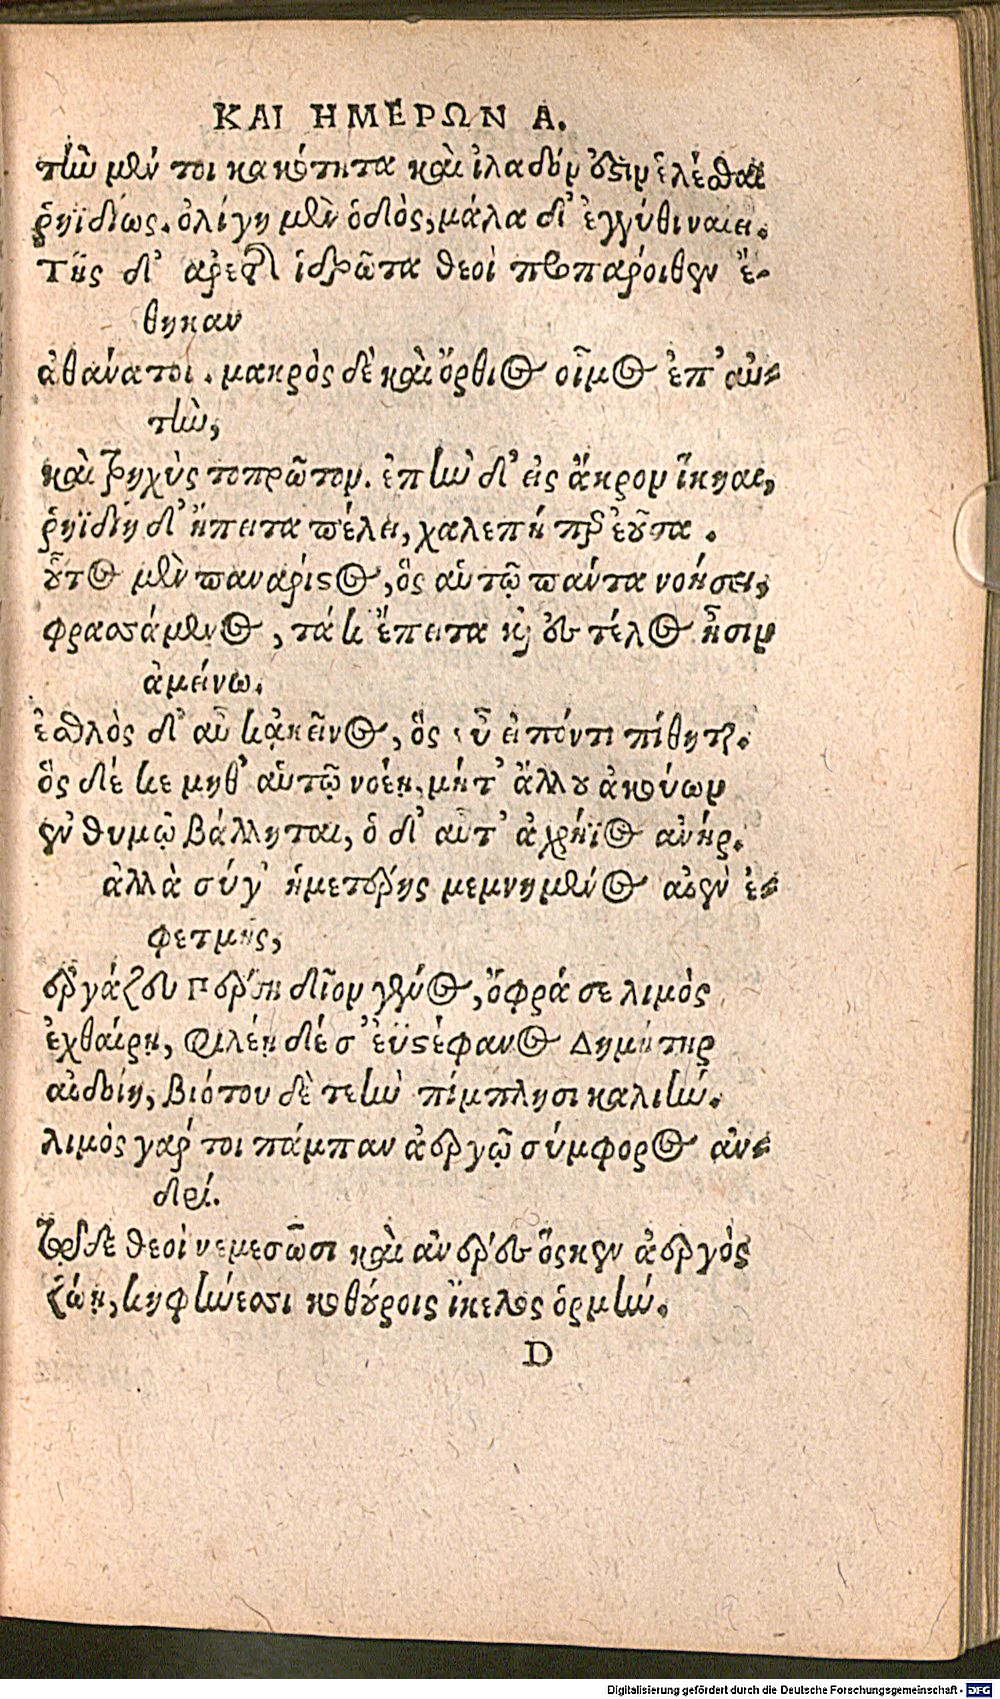 ΚΑΙ ΗΜΕΡΩΝ Α.
τὴν μέν τοι κακότητα καὶ ἰλαδόν ὅστιν ἑλέσθαι
ῥηϊδίως. ὀλίγη μὲν ὁδὸς, μάλα δ' ἐγγύθι ναίει.
Τῆς δ' ἀρετῆς ἱδρῶτα θεοὶ προπάροιθεν ἔ-
θηκαν
ἀθάνατοι. μακρὸς δὲ καὶ ὄρθιος οἶμος ἐπ' αὐ-
τὴν,
καὶ τρηχὺς τοπρῶτον. ἐπὴν δ' εἰς ἄκρον ἵκηαι,
ῥηϊδίη δ' ἤπειτα πέλει, χαλεπή περ ἐοῦσα.
οὗτος μὲν πανάριστος, ὃς αὑτῷ πάντα νοήσει,
φρασσάμενος, τά κ' ἔπειτα καὶ ἐς τέλος ᾖσιν
ἀμείνω.
ἐσθλὸς δ' αὖ κἀκεῖνος, ὃς εὖ εἰπόντι πίθηται.
ὃς δέ κε μήθ' αὑτῷ νοέῃ, μήτ' ἄλλου ἀκούων
ἐν θυμῷ βάλληται, ὁ δ' αὖτ' ἀχρήϊος ἀνήρ.
ἀλλὰ σύγ' ἡμετέρης μεμνημένος αἰὲν ἐ-
φετμῆς,
ἐργάζευ Πέρση δῖον γένος, ὄφρά σε λιμὸς
ἐχθαίρῃ, φιλέῃ δέ σ' ἐϋστέφανος Δημήτηρ
αἰδοίη, βιότου δὲ τεὴν πίμπλησι καλιήν.
λιμὸς γάρ τοι πάμπαν ἀεργῷ σύμφορος ἀν-
δρί.
τῷ δὲ θεοὶ νεμεσῶσι καὶ ἀνέρες ὅς κεν ἀεργὸς
ζώῃ, κηφήνεσσι κοθούροις ἴκελος ὁρμήν.
D
Digitalisierung gefördert durch die Deutsche Forschungsgemeinschaft - DFG